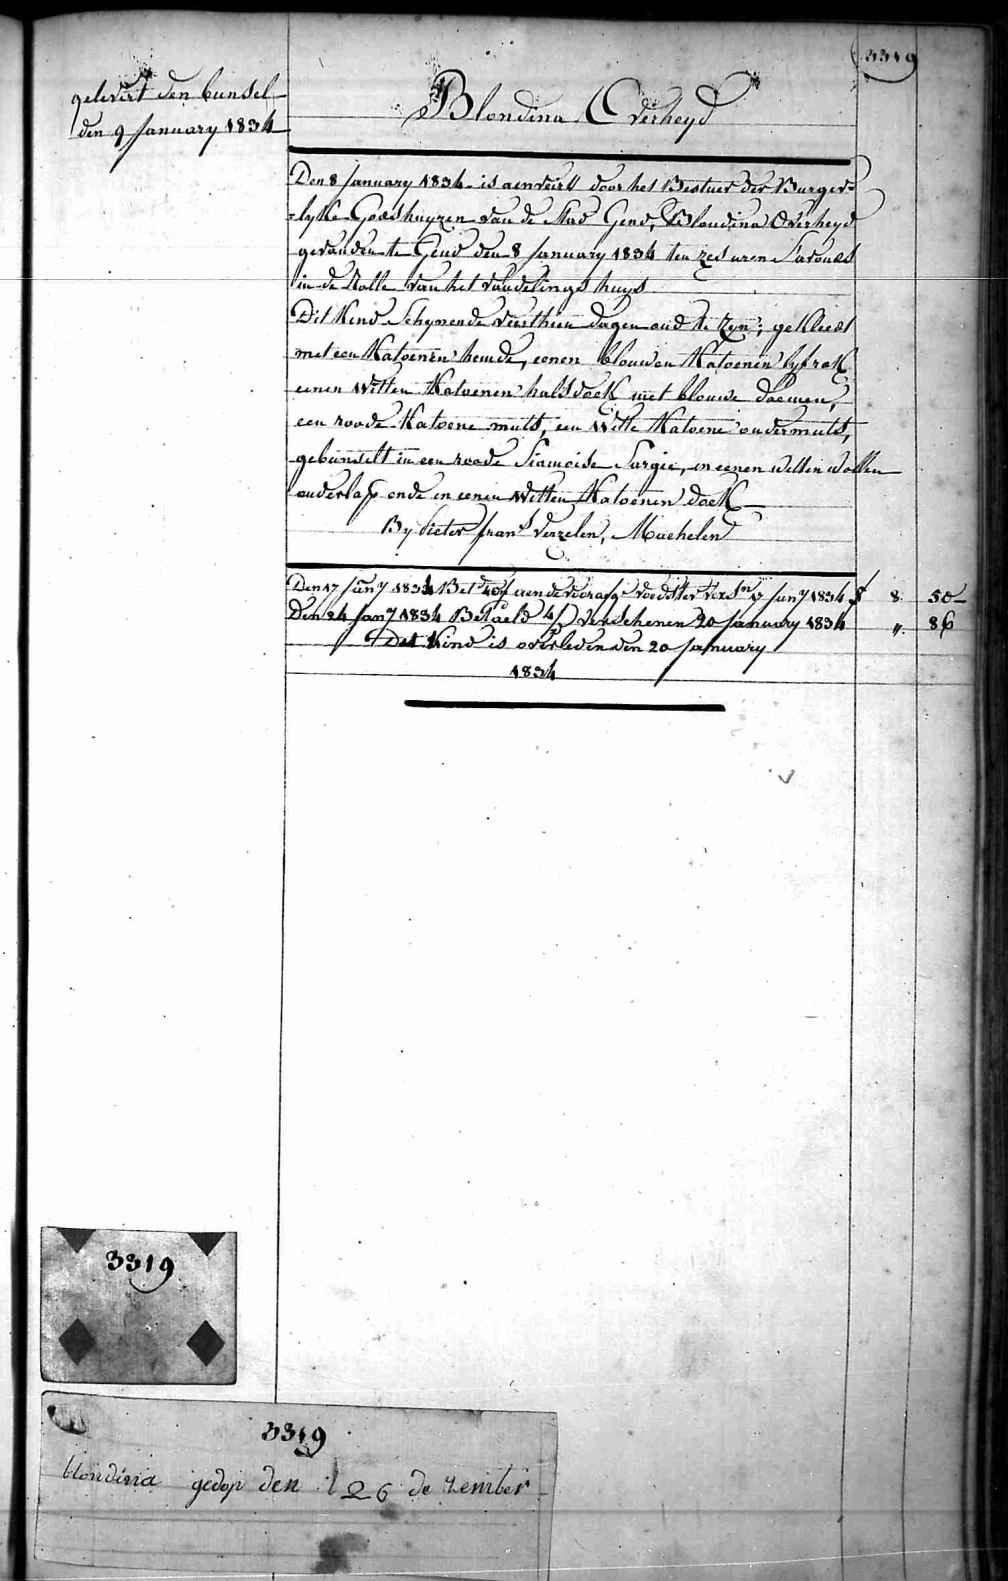 3319
gelevert den bunsel
den 9 January 1834
Blondina Overheyd
Den 8 January 1834 is aenveirt door het Bestuer der Burger-
-lyke Godshuyzen van de Stad Gend, Blondina Overheyd
gevonden te Gend den 8 January 1834 ten zes uren S'avonds
in de Rolle van het vondelingshuys
Dit Kind Schynende veerthien dagen oud te zyn; gekleed
met een Katoenen hemde, eenen blauwen Katoenen lyfrok
eenen Witten Katoenen halsdoek met blouwe bloemen,
een roode Katoene muts, een Witte Katoene ondermuts,
gebunselt in een roode Siamoise Sargie, en eenen Witten Wollen
onderlap ende in eenen Witten Katoenen doek
By Pieter frans Verzelen, Machelen
Den 17 Jany 1834 Bet aen de voorafge voedster 17 Jany 1834 8 50
Den 24 Jany 1834 Betaeld Verschenen 20 January 1834 " 86
Dit Kind is overleden den 20 January
1834
3319
3319
blondina gedop den 26 de zember